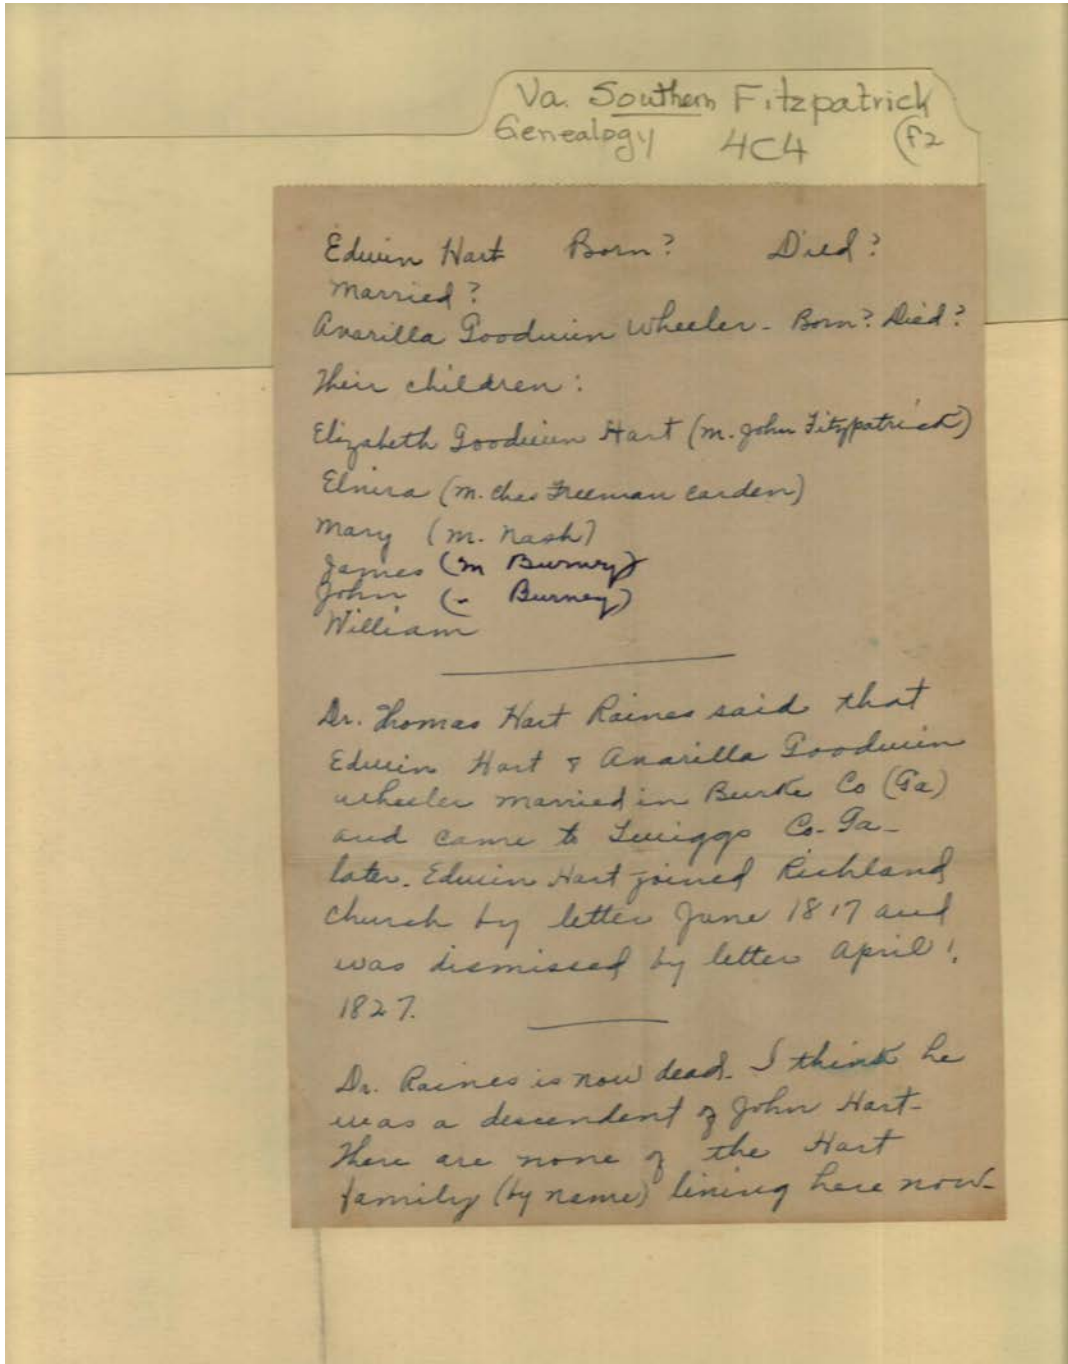 Va. Southern Fitzpatrick
Genealogy 4C4 (F2
Edwin Hart Born? Died?
Married?
Anarilla Goodwin Wheeler - Born? Died?
Their children:
Elizabeth Goodwin Hart (m. John Fitzpatrick)
Elmira (m. Chas Freeman Carden)
Mary (m. Nash)
James (m Burney)
John (" Burney)
William
Dr. Thomas Hart Raines said that
Edwin Hart & Anarilla Goodwin
Wheeler married in Burke Co (Ga)
and came to Twiggs Co. Ga -
later. Edwin Hart joined Richland
Church by letter June 1817 and
was dismissed by letter April 1,
1827.
Dr. Raines is now dead. I think he
was a descendent of John Hart -
There are none of the Hart
family (by name) living here now -